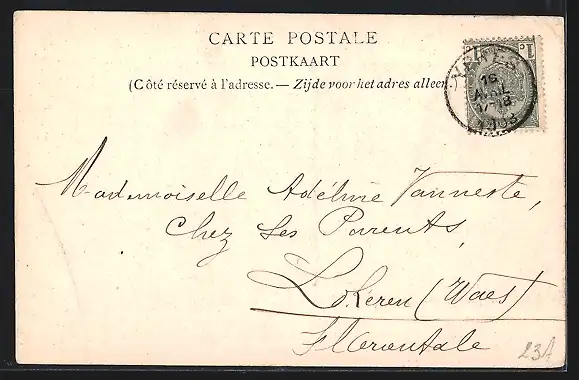 CARTE POSTALE
POSTKAART
(Côté réservé à l'adresse. — Zijde voor het adres alleen.
1 c 1 c
16
1903
Mademoiselle Adéline Vanneste,
Chez Ses Parents,
Lokeren (Waes)
Fl Orientale
23A